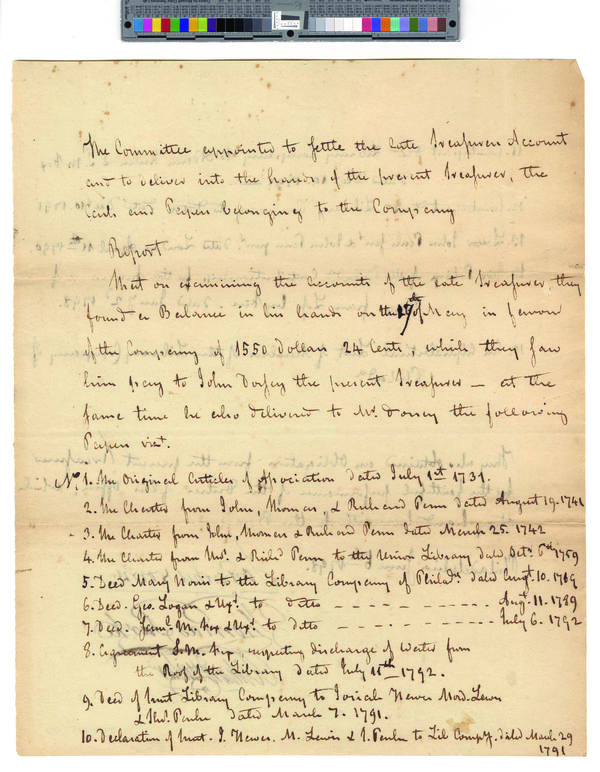 The Committee appointed to settle the late Treasurers Account
and to deliver into the hands of the present Treasurer, the
Cash and Papers belonging to the Company
Report
That on examining the accounts of the late Treasurer, they
found a Balance in his hands on the 19th of May in favour
of the Company of 1550 Dollars 24 Cents, which they saw
him pay to John Dorsey the present Treasurer — at the
same time he also delivered to Mr. Dorsey the following
Papers vizt.
No. 1. The Original Articles of Association dated July 1st 1731.
2. The Charter from John, Thomas, & Richard Penn dated August 19. 1741
3. The Charter from John, Thomas & Richard Penn dated March 25. 1742
4. The Charter from Thos. & Richd Penn to the Union Library dated Octr. 6th 1759
5. Deed Mary Norris to the Library Company of Philada. dated Augt. 10. 1789
6. Deed. Geo. Logan & Uxr. to ditto — — — — — — Augt. 11. 1789
7. Deed. Saml. M. Fox & Uxr. to ditto — — — — — — July 6. 1792
8. Agreement S. M. Fox, respecting discharge of Water from
the Roof of the Library dated July 11th 1792.
9. Deed of Library Company to Josiah Hewes Mord. Lewis
& dated March 7. 1791.
10. Declaration of J. Hewes. M. Lewis & to Lib Compy. dated March 29
1791